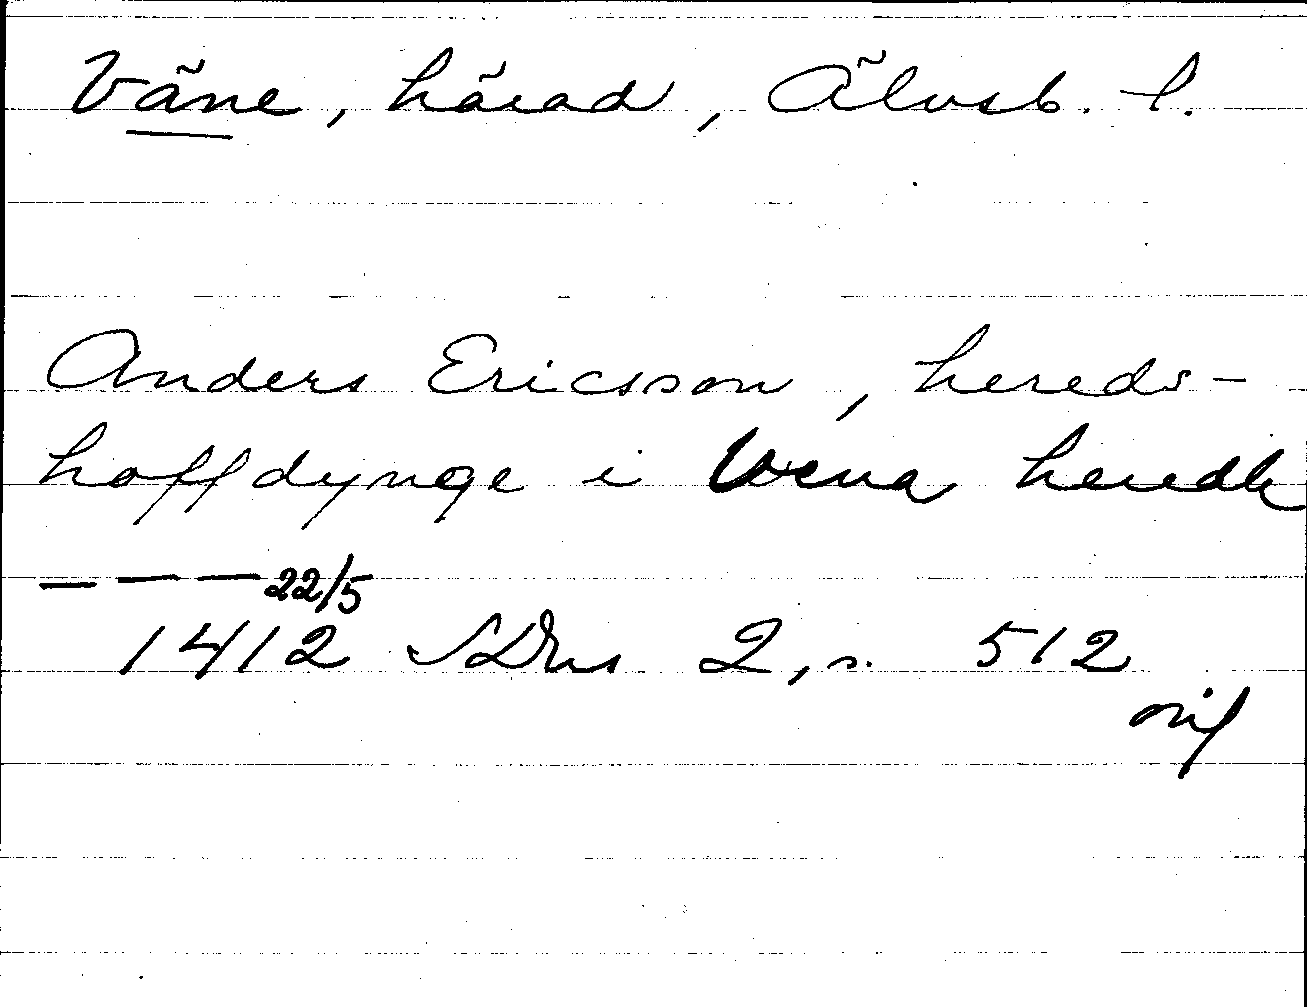 Väne, härad, Älvsb. l.
Anders Ericsson, hereds-
hoffdynge i Wena heredh
— — — 22/5
1412 SDns 2, s. 512
orig